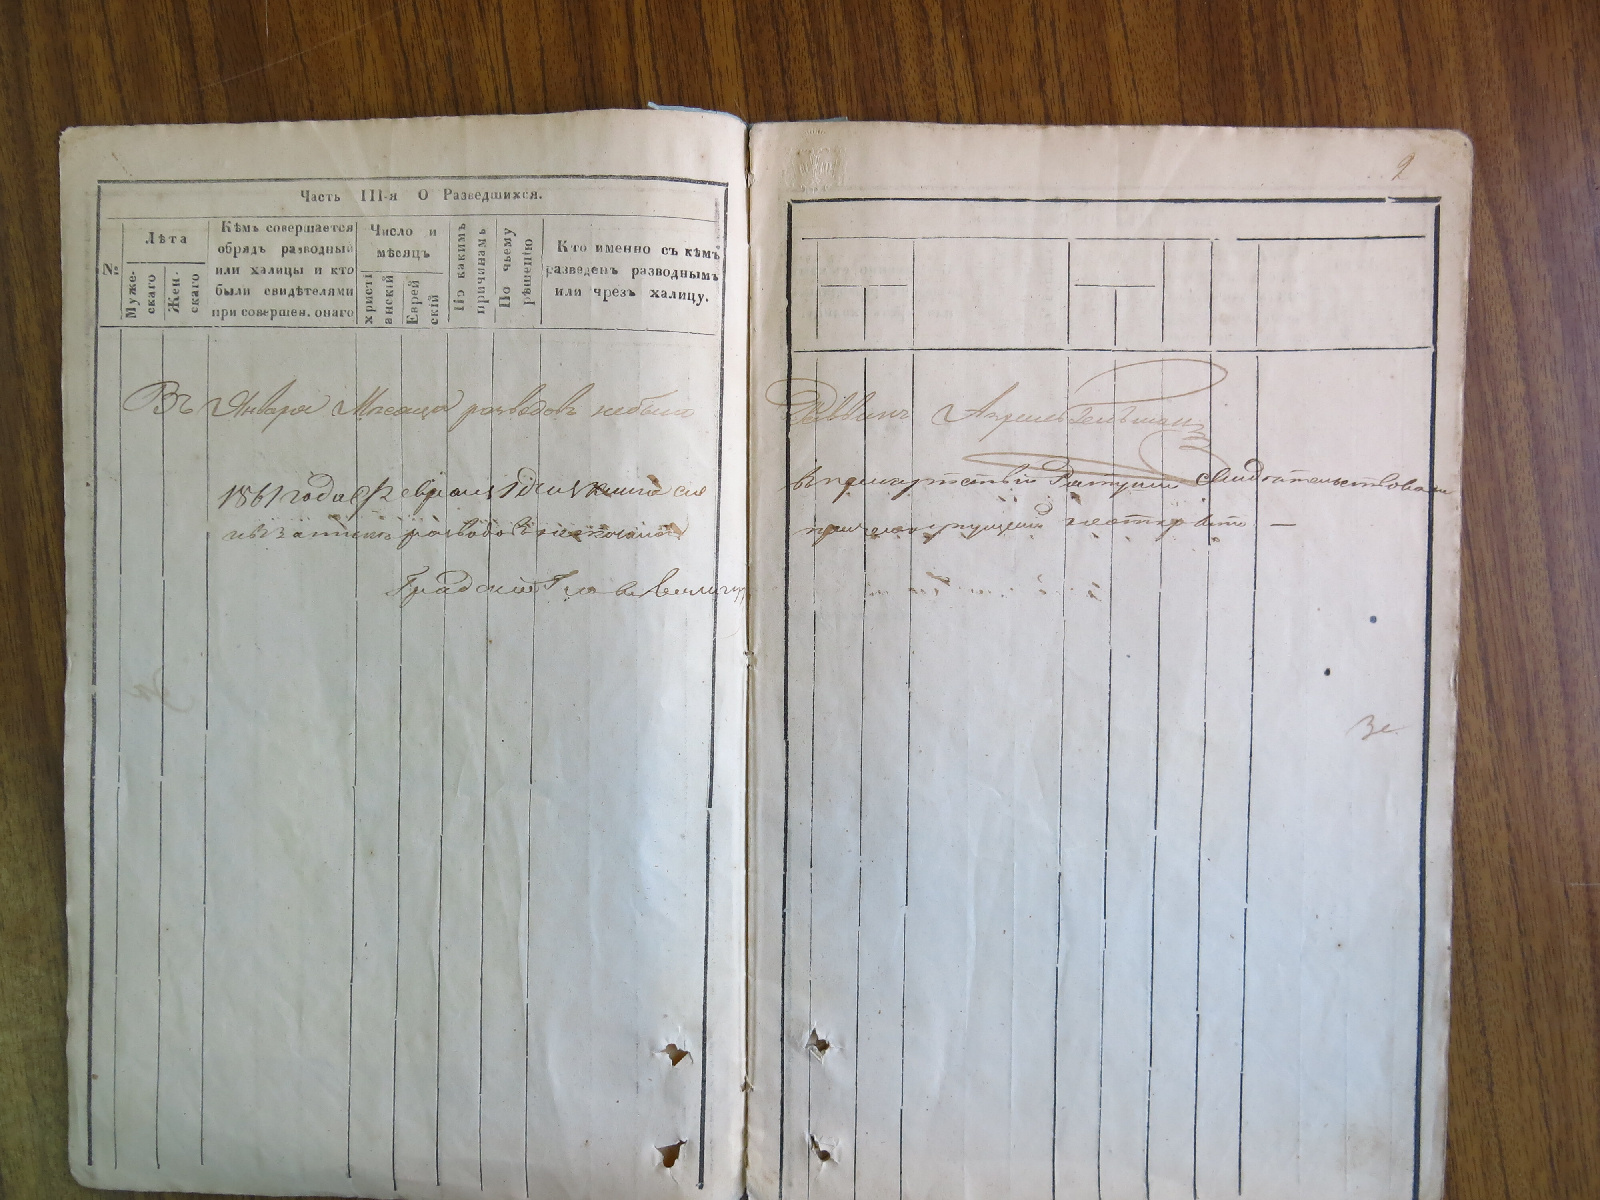 Часть III-я О Разведшихся.
№
Лѣта
Муже-
скаго
Жен-
скаго
Кѣмъ совершается
обрядъ разводный
или халицы и кто
были свидѣтелями
при совершен. онаго
Число и
мѣсяцъ
христі
анскій
Еврей
скій
По какимъ
причинамъ
По чьему
рѣшенію
Кто именно съ кѣмъ
разведенъ разводнымъ
или чрезъ халицу.
Въ Январѣ Мѣсяцѣ разводовъ небыло
1861 года Февраля 1 дня книга сия
разводовъ
Градскій Глава
9
Раввинъ
въ присутствіи Ратуши Свидѣтельствована